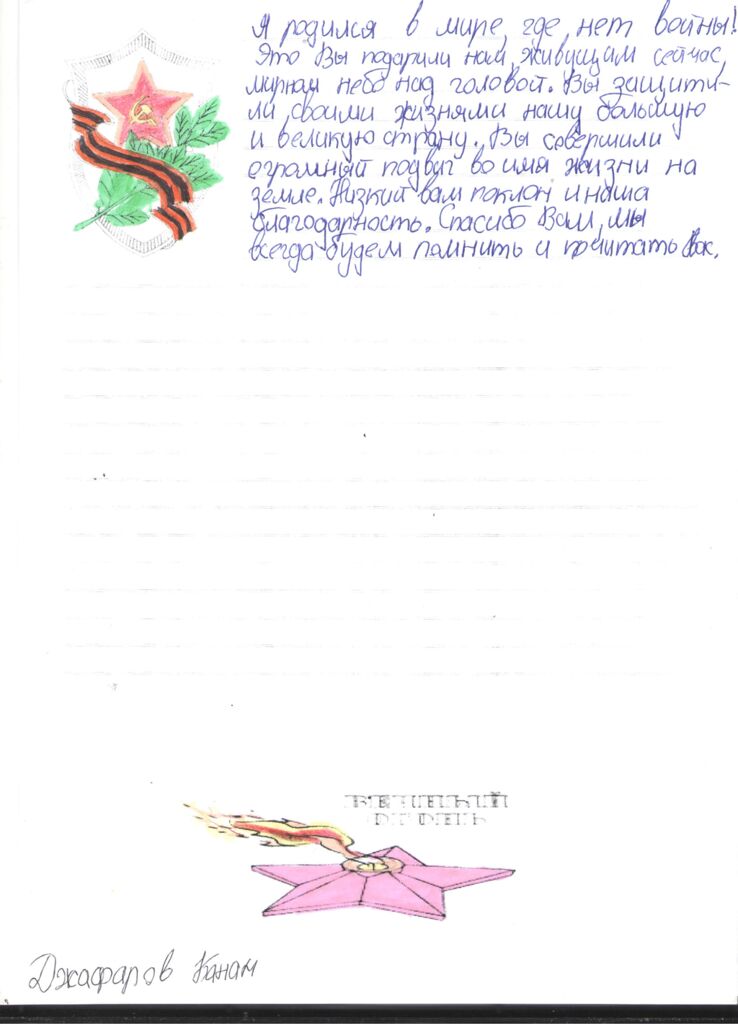 Я родился в мире, где нет войны!
Это Вы подарили нам, живущим сейчас,
мирнам небо над головой. Вы защити-
ли своими жизнями нашу большую
и великую страну. Вы совершили
огромный подвиг во имя жизни на
земле. Низкий вам поклон и наша
благодарность. Спасибо Вам, мы
всегда будем помнить и почитать Вас.
ВЕЧНЫЙ
ОГОНЬ
Джафаров Канам